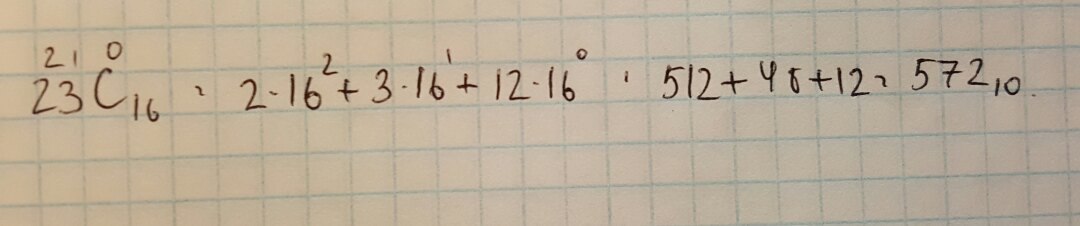 2 1 0
23C₁₆ = 2·16² + 3·16¹ + 12·16⁰ = 512 + 48 + 12 = 572₁₀.